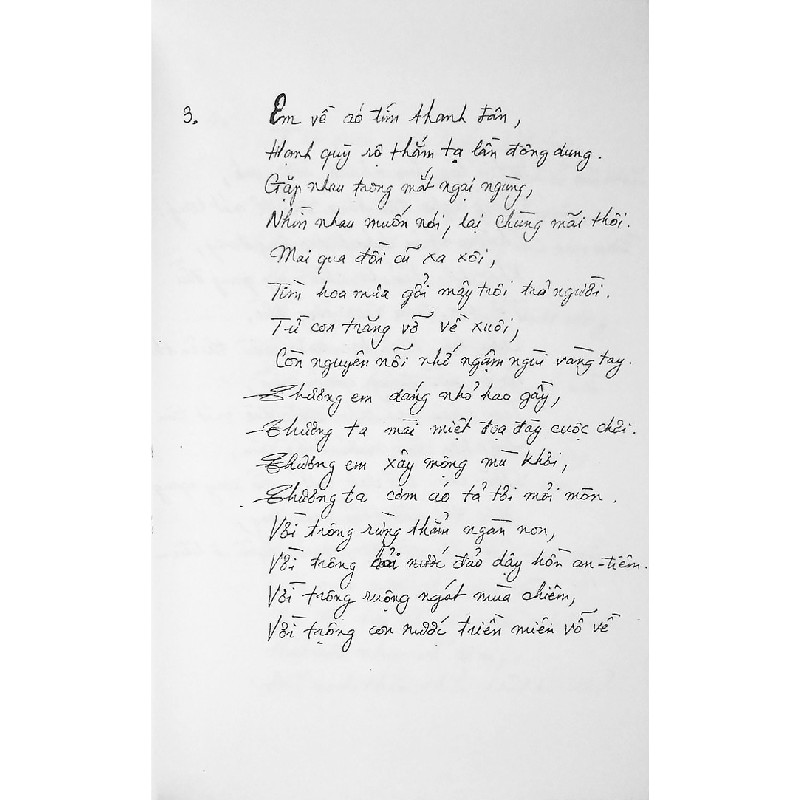 3. Em về áo tím thanh tân,
Hạnh quỳ rõ thắm tạ lần đông dung.
Gặp nhau trong mắt ngại ngùng,
Nhìn nhau muốn nói, lại chừng mãi thôi.
Mai qua đồi cũ xa xôi,
Tìm hoa mùa gởi mây trôi trả người.
Từ con trăng vỡ về xuôi,
Còn nguyên nỗi nhớ ngậm ngùi vàng tay.
Thương em dáng nhỏ hao gầy,
Thương ta mài miệt đọa đày cuộc chơi.
Thương em xây mộng mù khơi,
Thương ta cơm áo tả tơi mỏi mòn.
Vời trông rừng thẳm ngàn non,
Vời trông nước đảo dậy hồn an-tiêm.
Vời trông ruộng ngát mùa chiêm,
Vời trông con nước triền miên vỗ về